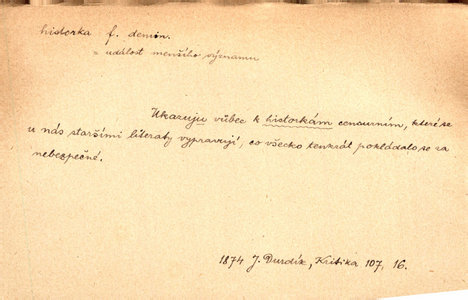 historka f. demin.
= událost menšího významu
Ukazuju vůbec k historkám censurním, které se
u nás staršími literaty vypravují, co všecko tenkrát pokládalo se za
nebezpečné.
1874 J. Durdík, Kritika 107, 16.